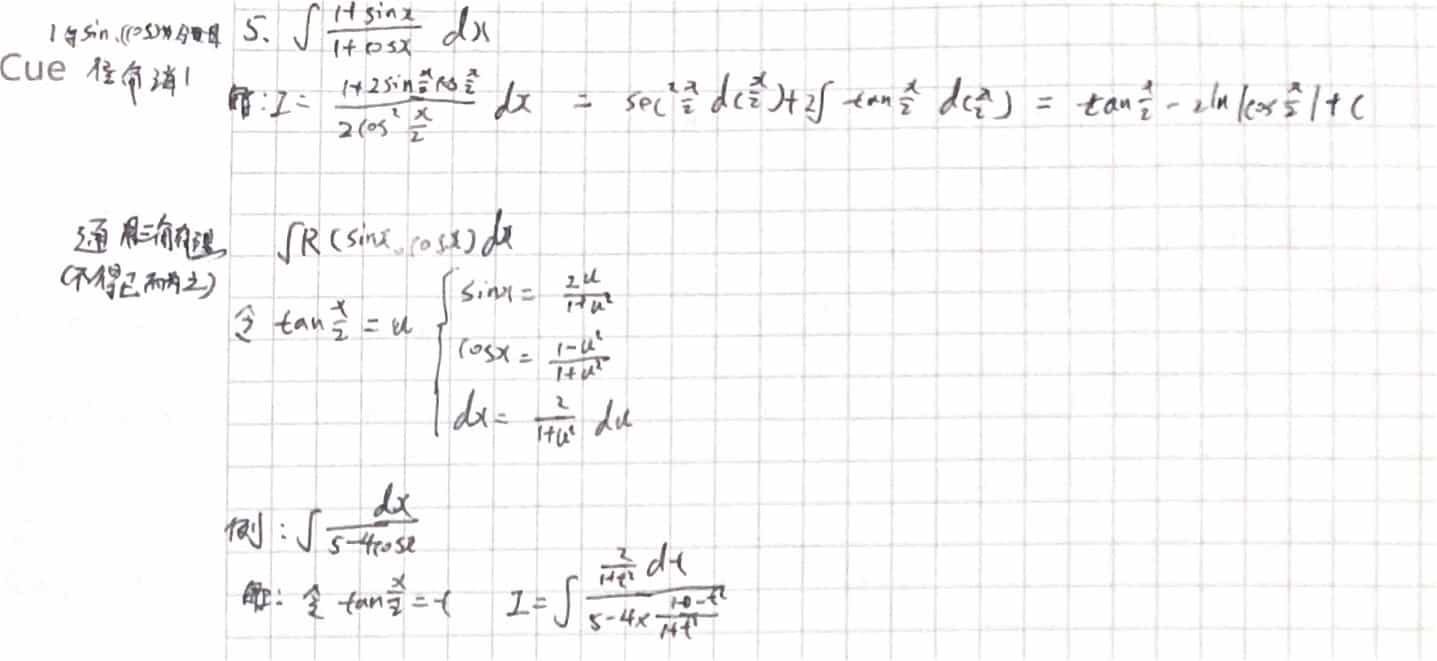 1与sin、(cos)为分母 5. ∫ (1+sinx)/(1+cosx) dx
Cue 往角消1
解:I= (1+2sin x/2 cos x/2)/(2cos² x/2) dx = sec² x/2 d(x/2)+2∫ tan x/2 d(x/2) = tan x/2 - 2ln|cos x/2|+C
通用三角有理 ∫R(sinx、cosx)dx
(不得已而为之)
令 tan x/2 = u { sinx= 2u/(1+u²)
cosx= (1-u²)/(1+u²)
dx= 2/(1+u²) du
例:∫ dx/(5-4cosx)
解:令 tan x/2 =t I=∫ (2/(1+t²) dt)/(5-4× (1-t²)/(1+t²))